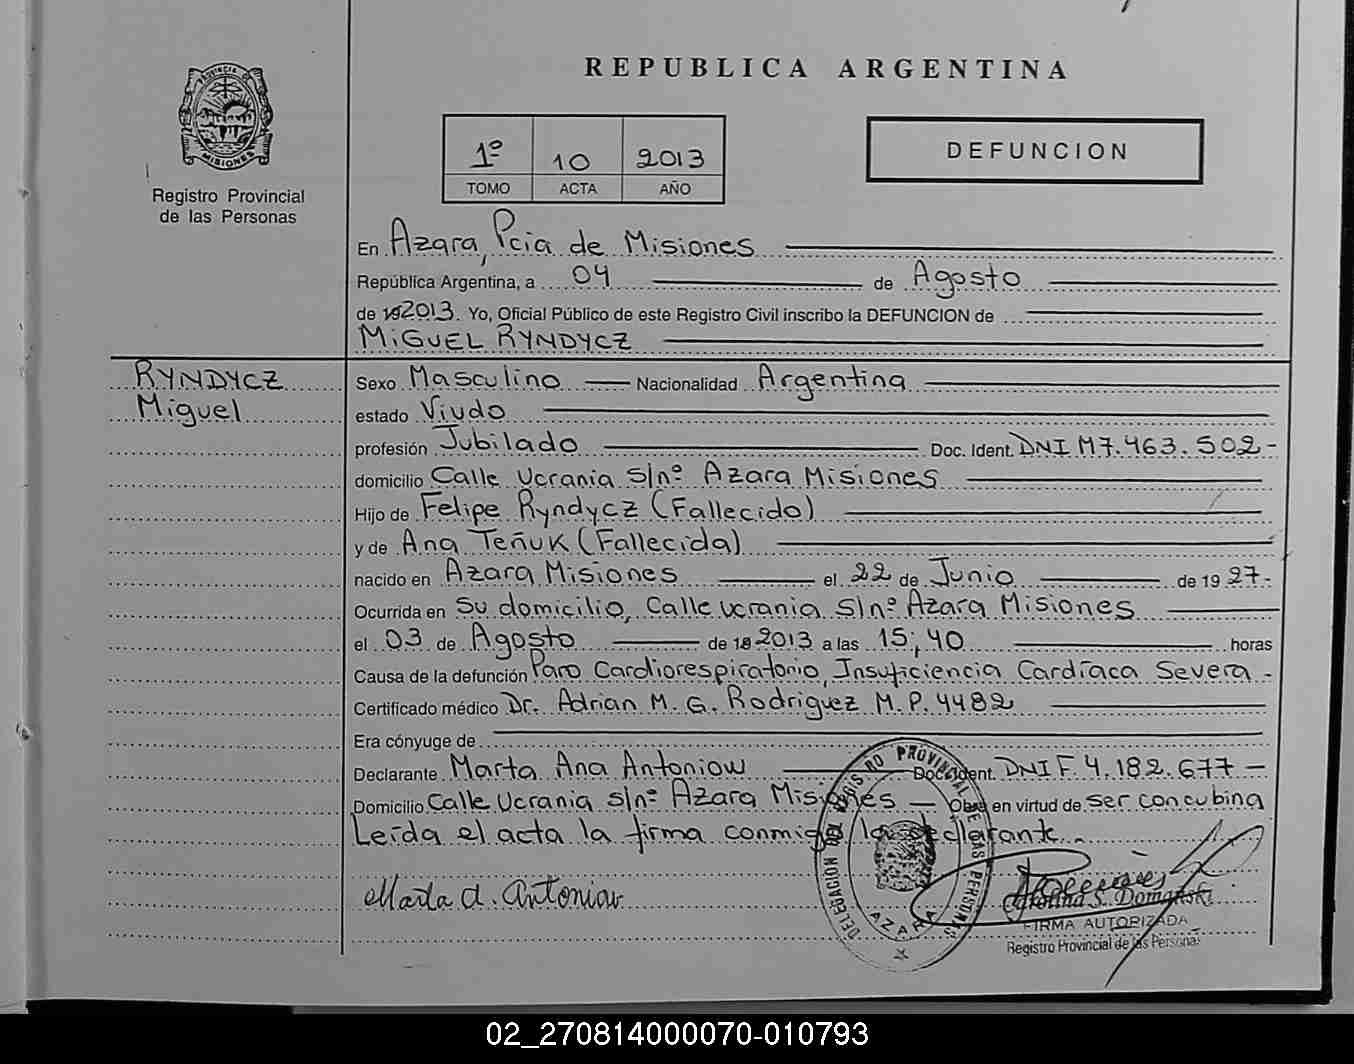 REPUBLICA ARGENTINA
PROVINCIA DE
MISIONES
Registro Provincial
de las Personas
1º 10 2013
TOMO ACTA AÑO
DEFUNCION
En Azara, Pcia de Misiones
República Argentina, a 04 de Agosto
de 192013. Yo, Oficial Público de este Registro Civil inscribo la DEFUNCION de
MIGUEL RYNDYCZ
RYNDYCZ
Miguel
Sexo Masculino Nacionalidad Argentina
estado Viudo
profesión Jubilado Doc. Ident. DNI M7.463.502-
domicilio Calle Ucrania s/nº Azara Misiones
Hijo de Felipe Ryndycz (Fallecido)
y de Ana Teñuk (Fallecida)
nacido en Azara Misiones el 22 de Junio de 19 27-
Ocurrida en su domicilio, Calle ucrania s/nº Azara Misiones
el 03 de Agosto de 192013 a las 15:,40 horas
Causa de la defunción Paro Cardiorespiratorio, Insuficiencia Cardíaca Severa -
Certificado médico Dr. Adrian M. G. Rodriguez M.P. 4482
Era cónyuge de
Declarante Marta Ana Antoniow Doc. Ident. DNI F 4.182.677-
Domicilio Calle Ucrania s/nº Azara Misiones - Obra en virtud de ser concubina
Leída el acta la firma conmigo la declarante.
Marta A. Antoniow
DELEGACION DEL REGISTRO PROVINCIAL DE LAS PERSONAS
AZARA
Carolina S. Domanski
FIRMA AUTORIZADA
Registro Provincial de las Personas
02_270814000070-010793